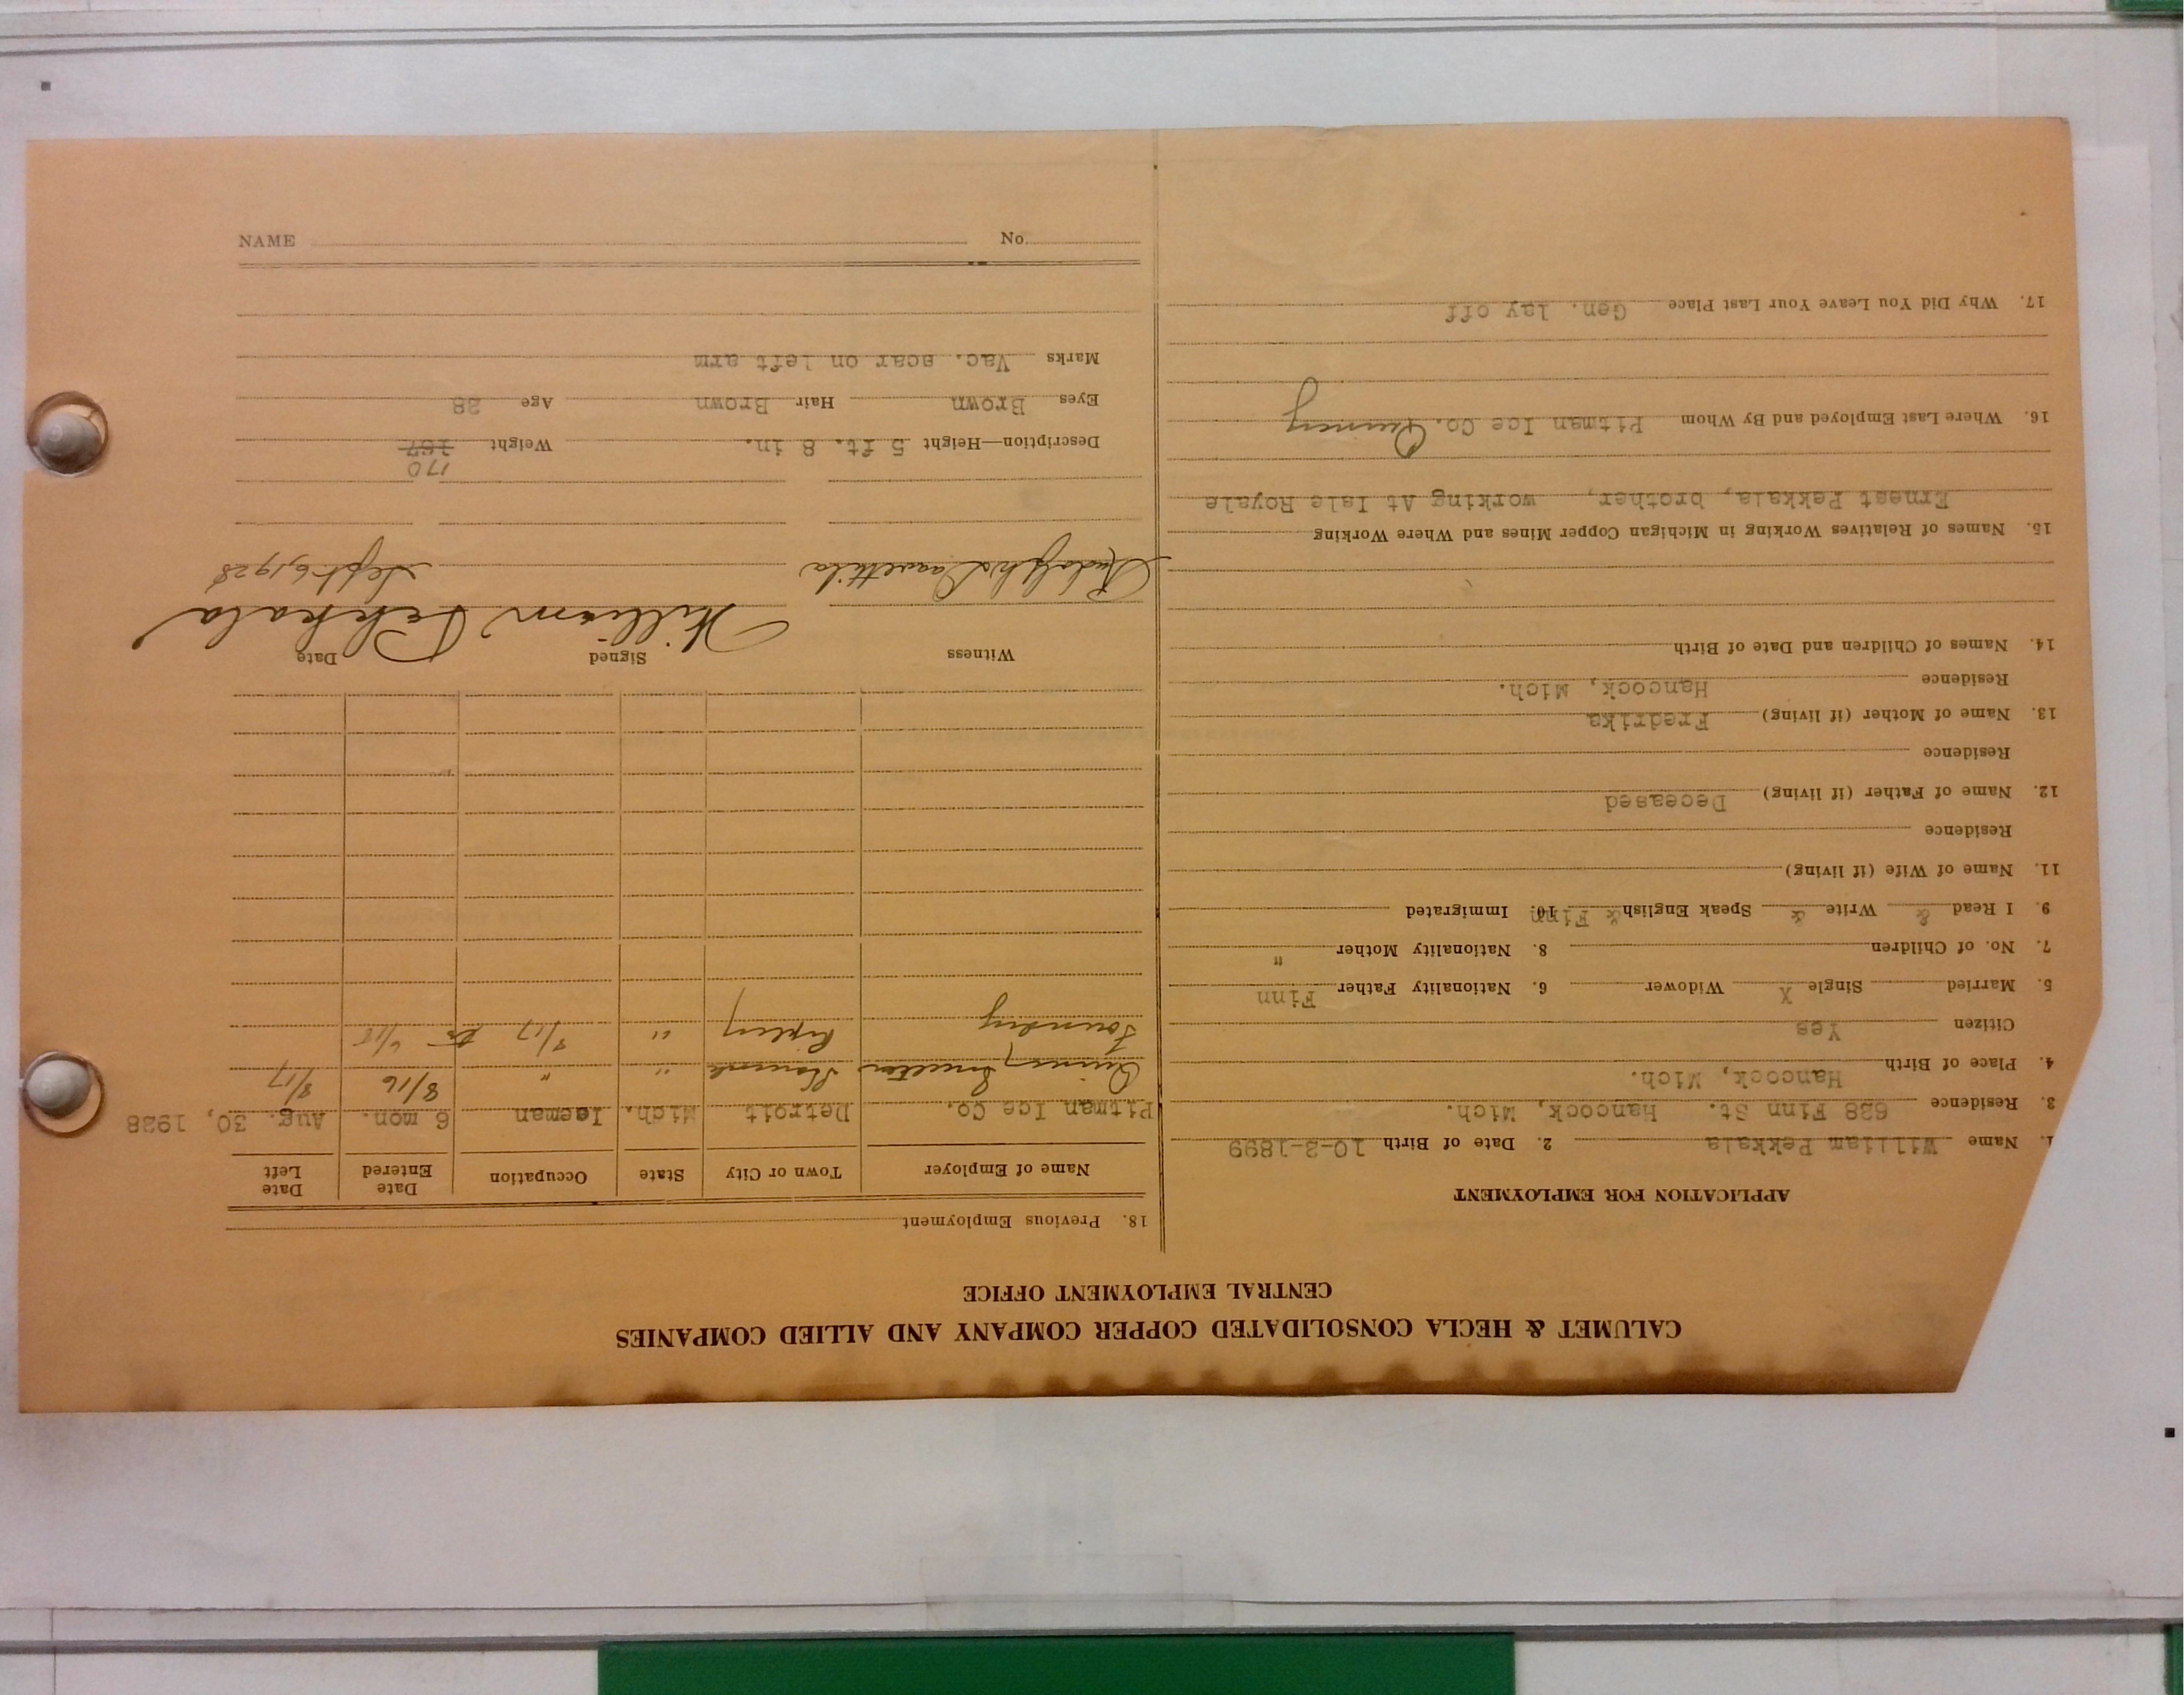 CALUMET & HECLA CONSOLIDATED COPPER COMPANY AND ALLIED COMPANIES
CENTRAL EMPLOYMENT OFFICE
APPLICATION FOR EMPLOYMENT
1. Name William Pekkala 2. Date of Birth 10-2-1899
3. Residence 628 Finn St. Hancock, Mich.
4. Place of Birth Hancock, Mich.
Citizen Yes
5. Married Single X Widower 6. Nationality Father Finn
7. No. of Children 8. Nationality Mother "
9. I Read & Write & Speak English & Finn 10. Immigrated
11. Name of Wife (if living)
Residence
12. Name of Father (if living) Deceased
Residence
13. Name of Mother (if living) Fredrika
Residence Hancock, Mich.
14. Names of Children and Date of Birth
15. Names of Relatives Working in Michigan Copper Mines and Where Working
Ernest Pekkala, brother, working At Isle Royale
16. Where Last Employed and By Whom Pitman Ice Co. Quincy
17. Why Did You Leave Your Last Place Gen. lay off
18. Previous Employment
Name of Employer Town or City State Occupation Date Entered Date Left
Pitman Ice Co. Detroit Mich. Iceman 6 mon. Aug. 30, 1928
Quincy Smelter Hancock " " 8/16 8/17
Foundry Ripley " 9/17 to 6/18
Witness Signed Date
William Pekkala
Rudolph Sept 6, 1928
170
Description—Height 5 ft. 8 in. Weight 167
Eyes Brown Hair Brown Age 28
Marks Vac. scar on left arm
NAME No.